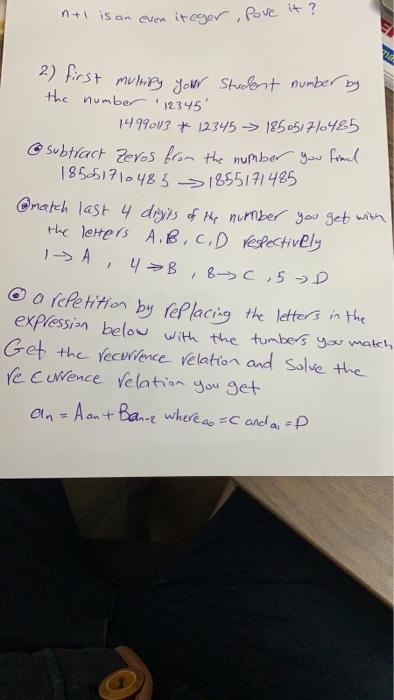 n+1 is an even iteger, Pove it?
2) first multiply your student number by
the number '12345'
1499013 * 12345 → 185051710485
subtract zeros from the number you find
18505171048 5 → 1855171485
match last 4 digits of the number you get with
the letters A, B, C, D respectively
1 → A , 4 → B , 8 → C , 5 → D
a repetition by replacing the letters in the
expression below with the tumbers you match
Get the recurrence relation and solve the
recurrence relation you get
an = Aan + Ban-2 where a0 = C and a1 = D